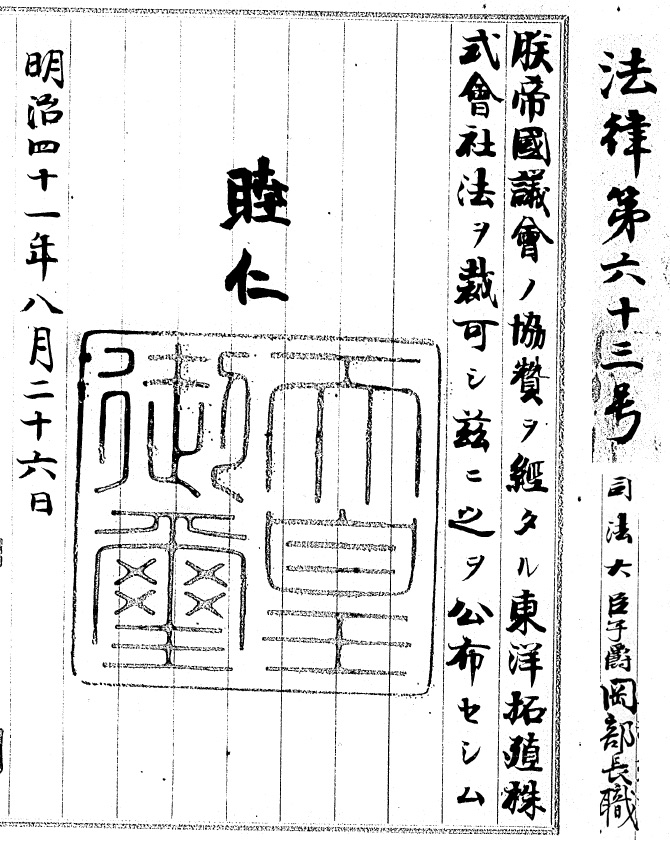 法律第六十三号
司法大臣子爵岡部長職
朕帝國議會ノ協贊ヲ經タル東洋拓殖株
式會社法ヲ裁可シ茲ニ之ヲ公布セシム
睦仁
天皇
御璽
明治四十一年八月二十六日